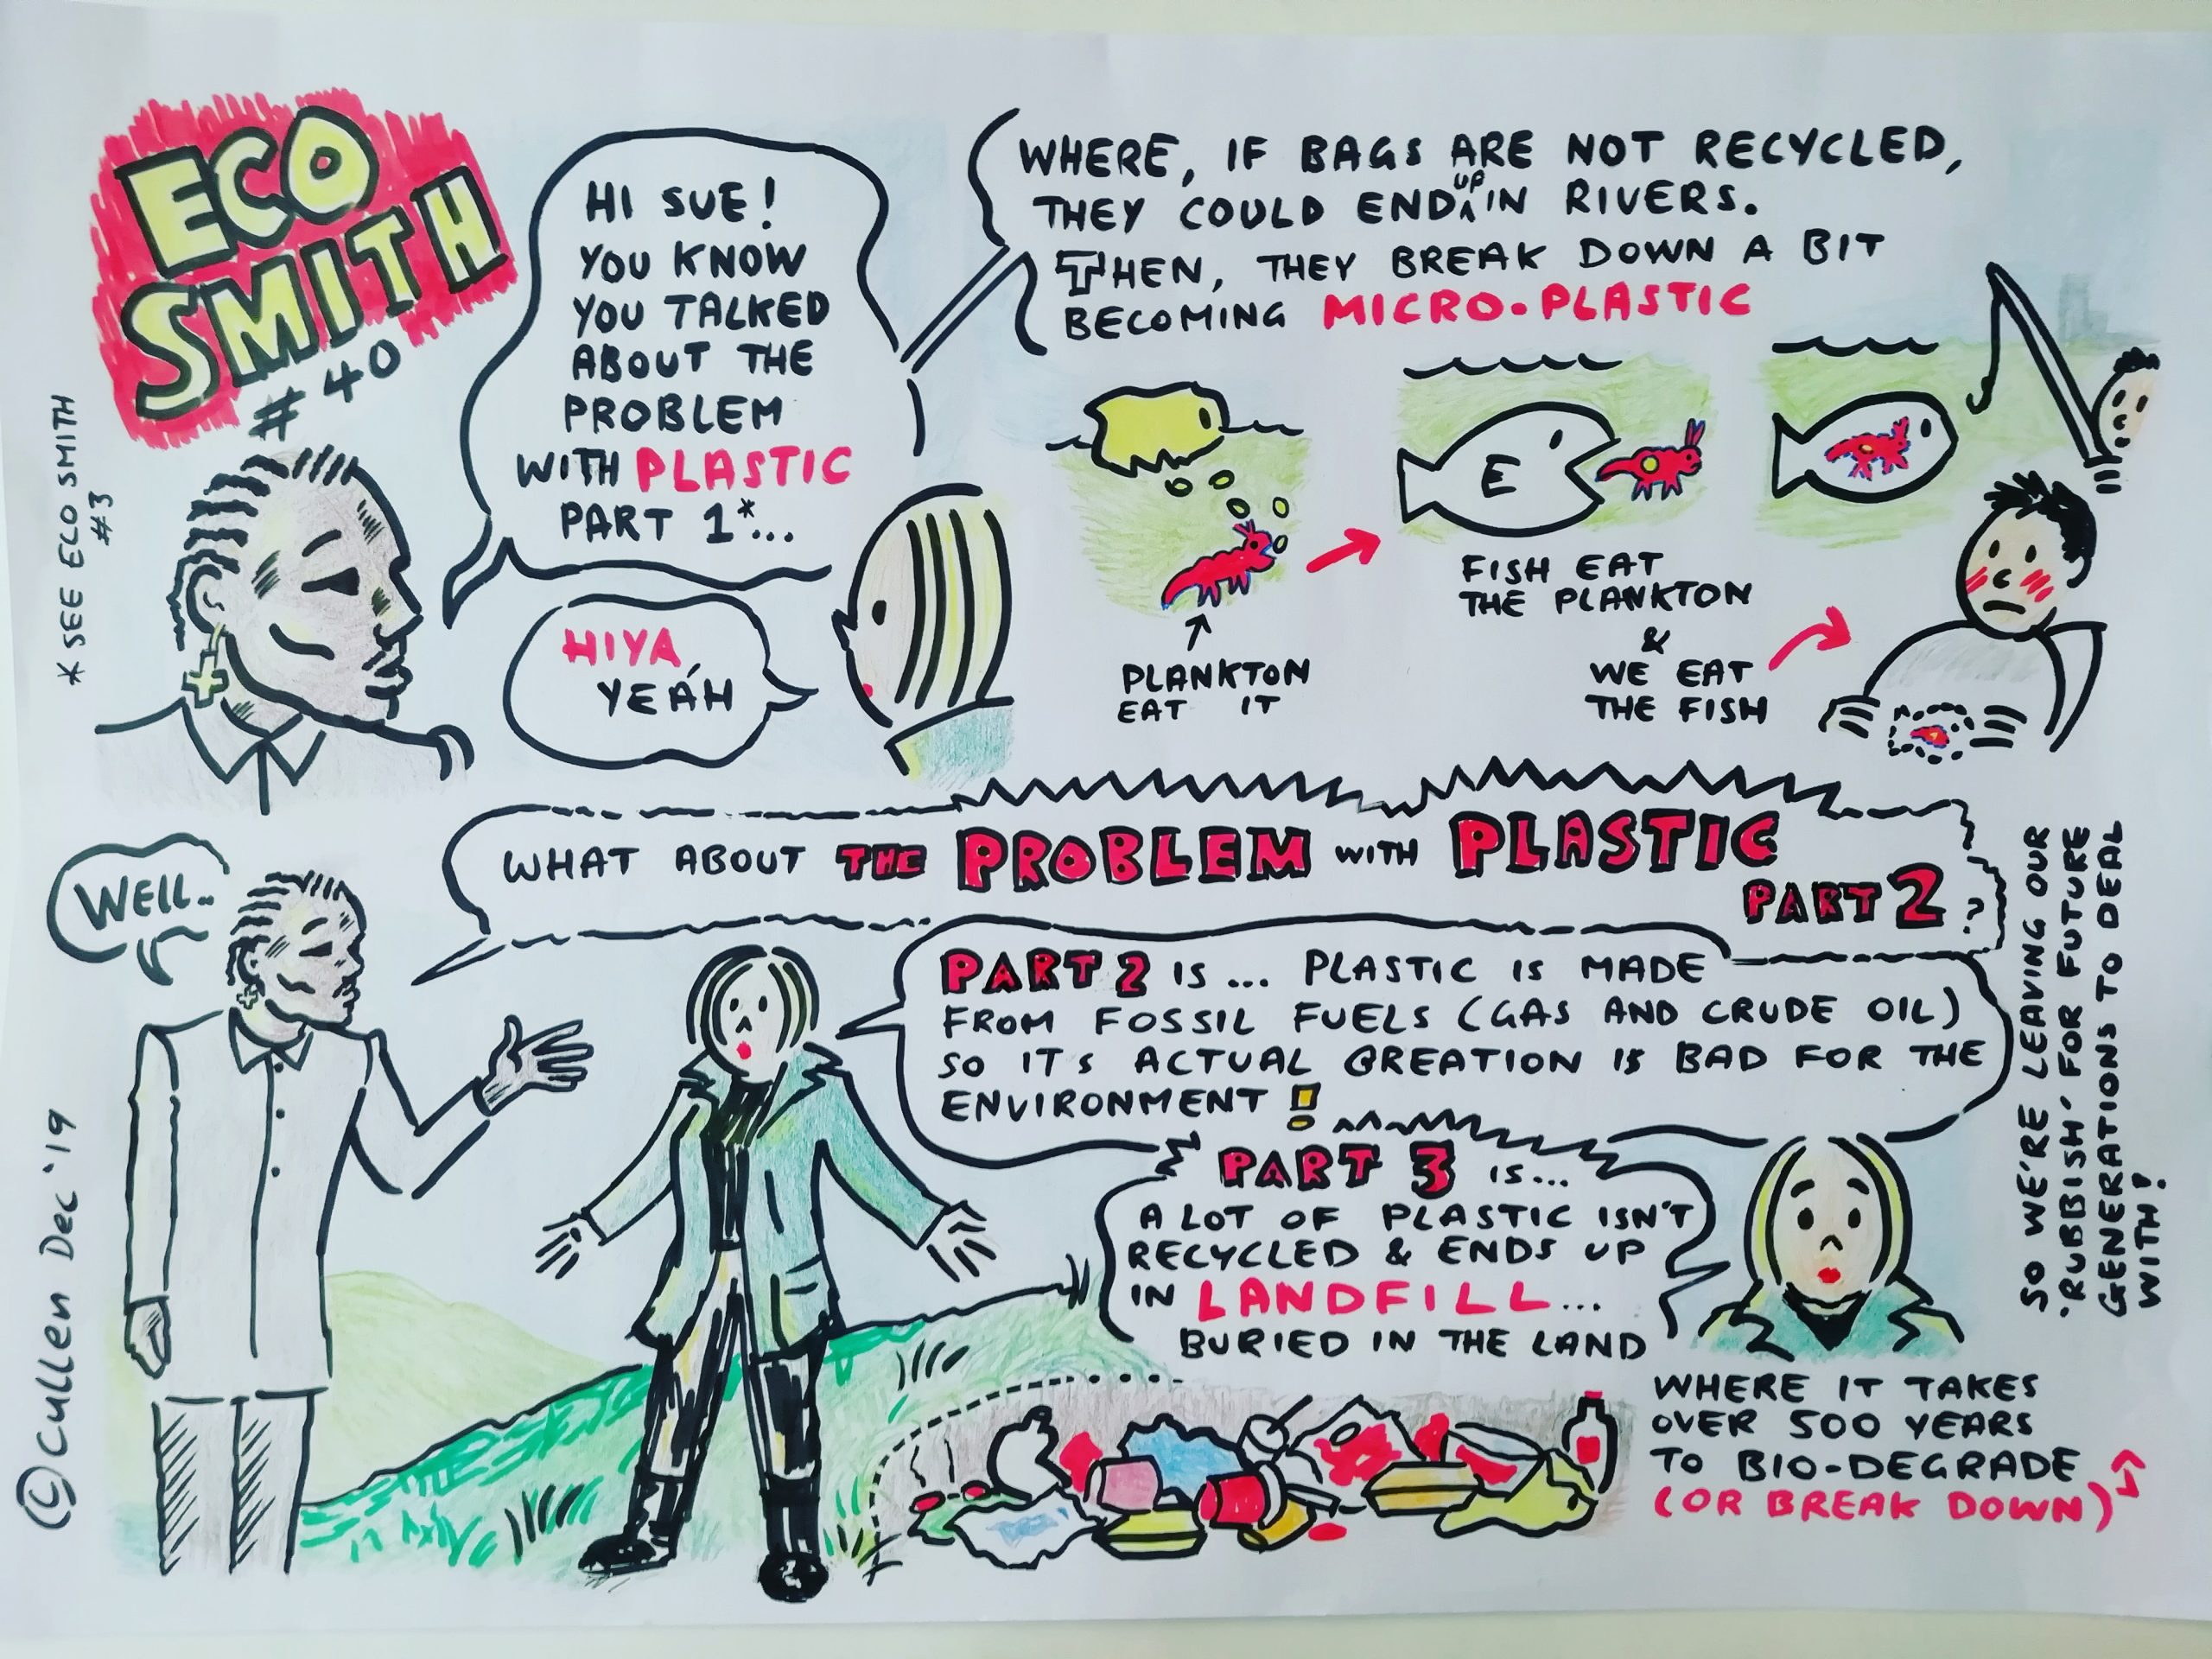 ECO
SMITH
# 40
* SEE ECO SMITH
#3
HI SUE!
YOU KNOW
YOU TALKED
ABOUT THE
PROBLEM
WITH PLASTIC
PART 1*...
HIYA,
YEAH
WHERE, IF BAGS ARE NOT RECYCLED,
THEY COULD END UP IN RIVERS.
THEN, THEY BREAK DOWN A BIT
BECOMING MICRO-PLASTIC
PLANKTON
EAT IT
E
FISH EAT
THE PLANKTON
&
WE EAT
THE FISH
WELL..
WHAT ABOUT THE PROBLEM WITH PLASTIC
PART 2?
PART 2 IS... PLASTIC IS MADE
FROM FOSSIL FUELS (GAS AND CRUDE OIL)
SO IT'S ACTUAL CREATION IS BAD FOR THE
ENVIRONMENT!
PART 3 IS...
A LOT OF PLASTIC ISN'T
RECYCLED & ENDS UP
IN LANDFILL...
BURIED IN THE LAND
WHERE IT TAKES
OVER 500 YEARS
TO BIO-DEGRADE
(OR BREAK DOWN)
SO WE'RE LEAVING OUR
'RUBBISH' FOR FUTURE
GENERATIONS TO DEAL
WITH!
© Cullen Dec '19